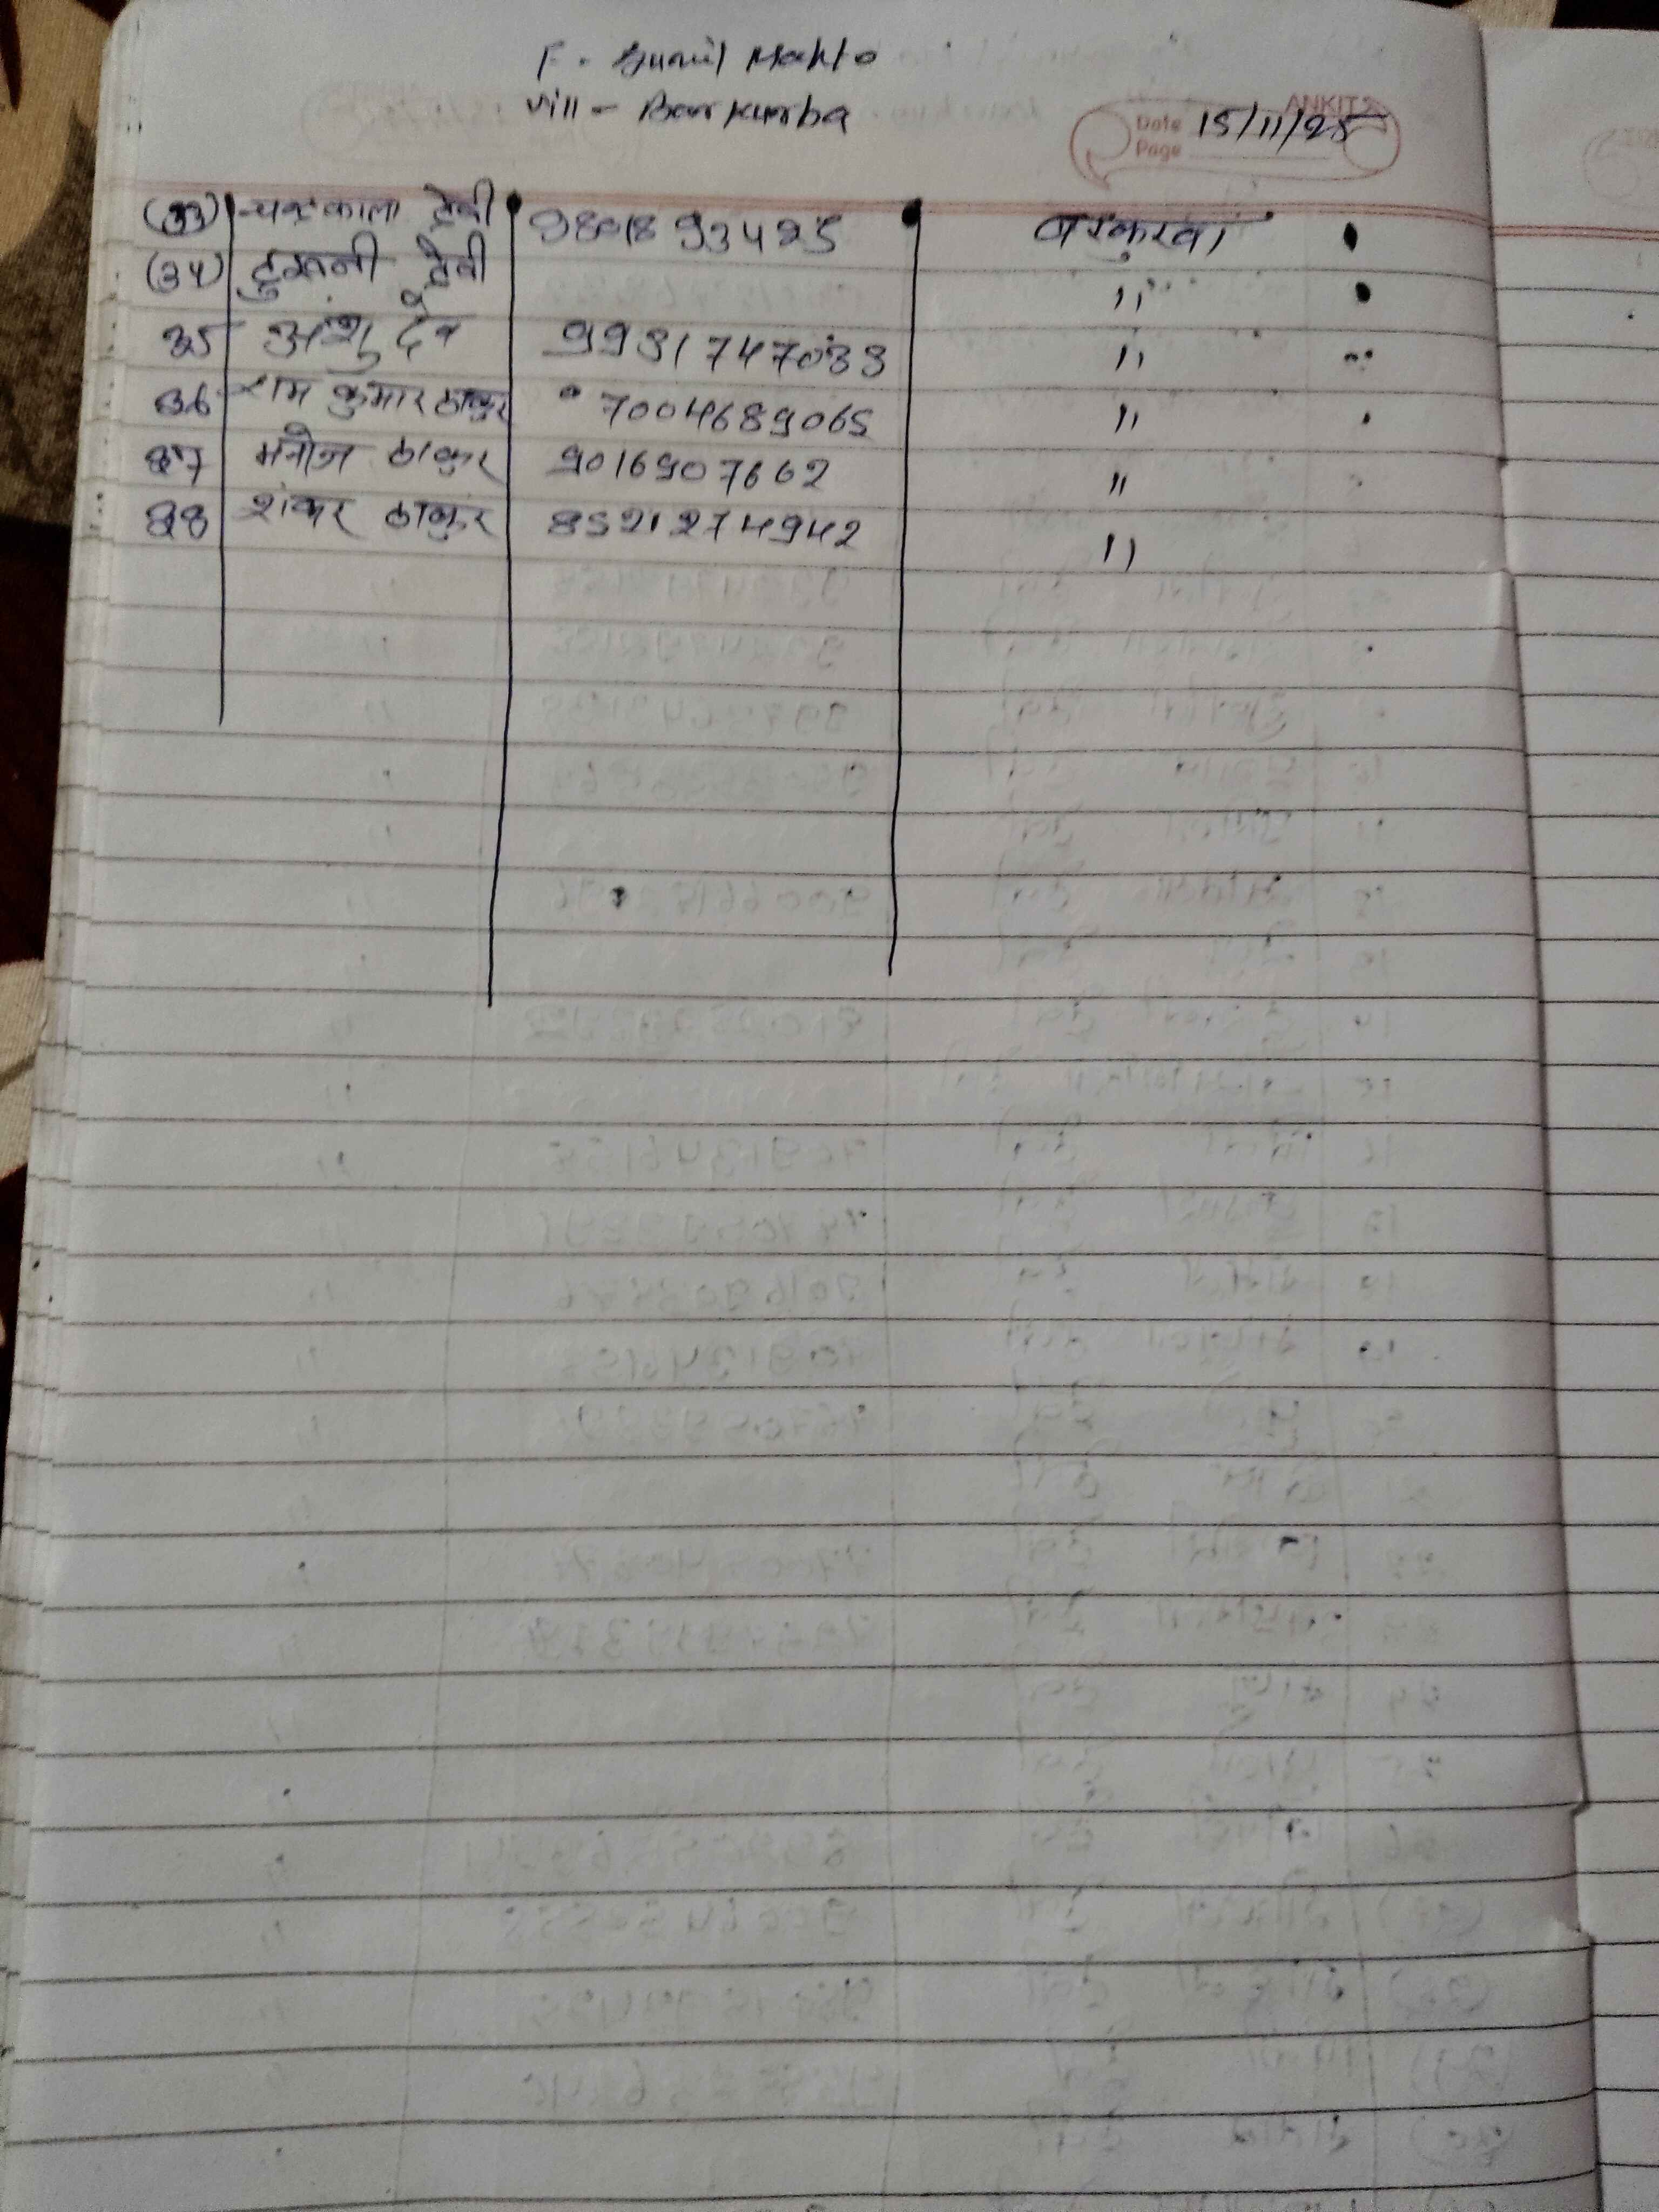 F. Sunil Mahto
Vill - Barkurba
ANKIT
Date 15/11/25
Page
(33) चन्द्रकाला देवी 9801893425 बरकुरवा
(34) दुखनी देवी "
35 अंशु देवी 9931747033 "
36 राम कुमार ठाकुर 7004689065 "
37 मनोज ठाकुर 9016907662 "
38 शंकर ठाकुर 8521274942 "